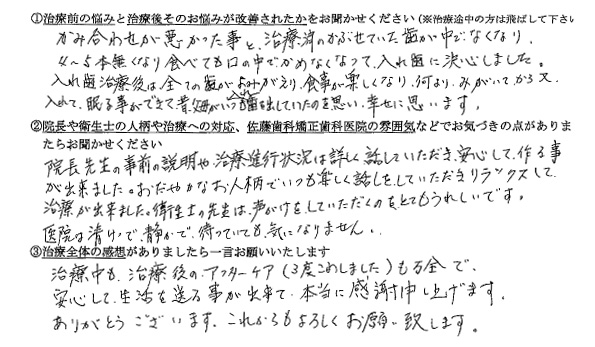 ①治療前の悩みと治療後そのお悩みが改善されたかをお聞かせください(※治療途中の方は飛ばして下さい
かみ合わせが悪かった事と、治療済のかぶせていた歯が中でなくなり、
4〜5本無くなり食べても口の中でかめなくなって、入れ歯に決心しました。
入れ歯治療後は、全ての歯がよみがえり、食事が楽しくなり、何より、みがいてから又、
入れて、眠る事ができて昔、母がいつも歯を出していたのを思い、幸せに思います。
②院長や衛生士の人柄や治療への対応、佐藤歯科矯正歯科医院の雰囲気などでお気づきの点がありま
たらお聞かせください
院長先生の事前の説明や、治療進行状況は詳しく話していただき、安心して、作る事
が出来ました。おだやかなお人柄でいつも楽しく話しをしていただきリラックスして、
治療が出来ました。衛生士の先生は、声がけをしていただくのもとてもうれしいです。
医院は清けつで、静かで、待っていても、気になりません。
③治療全体の感想がありましたら一言お願いいたします
治療中も、治療後のアフターケア(3度これしました)も万全で、
安心して、生活を送る事が出来て、本当に感謝申し上げます。
ありがとうございます。これからもよろしくお願い致します。